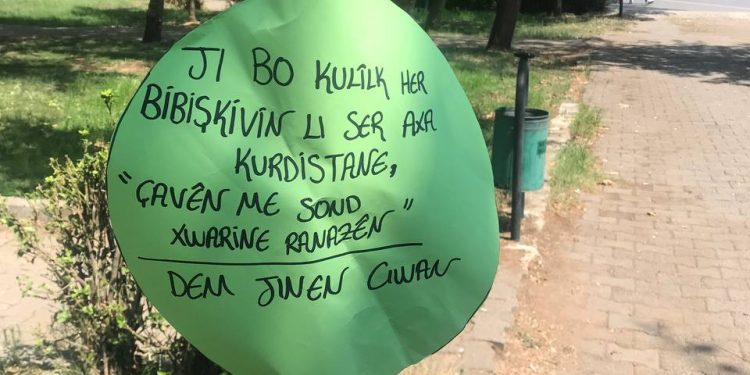 JI BO KULÎLK HER
BIBIŞKIVIN LI SER AXA
KURDISTANE,
"ÇAVÊN ME SOND
XWARINE RANAZÊN"
DEM JINEN CIWAN